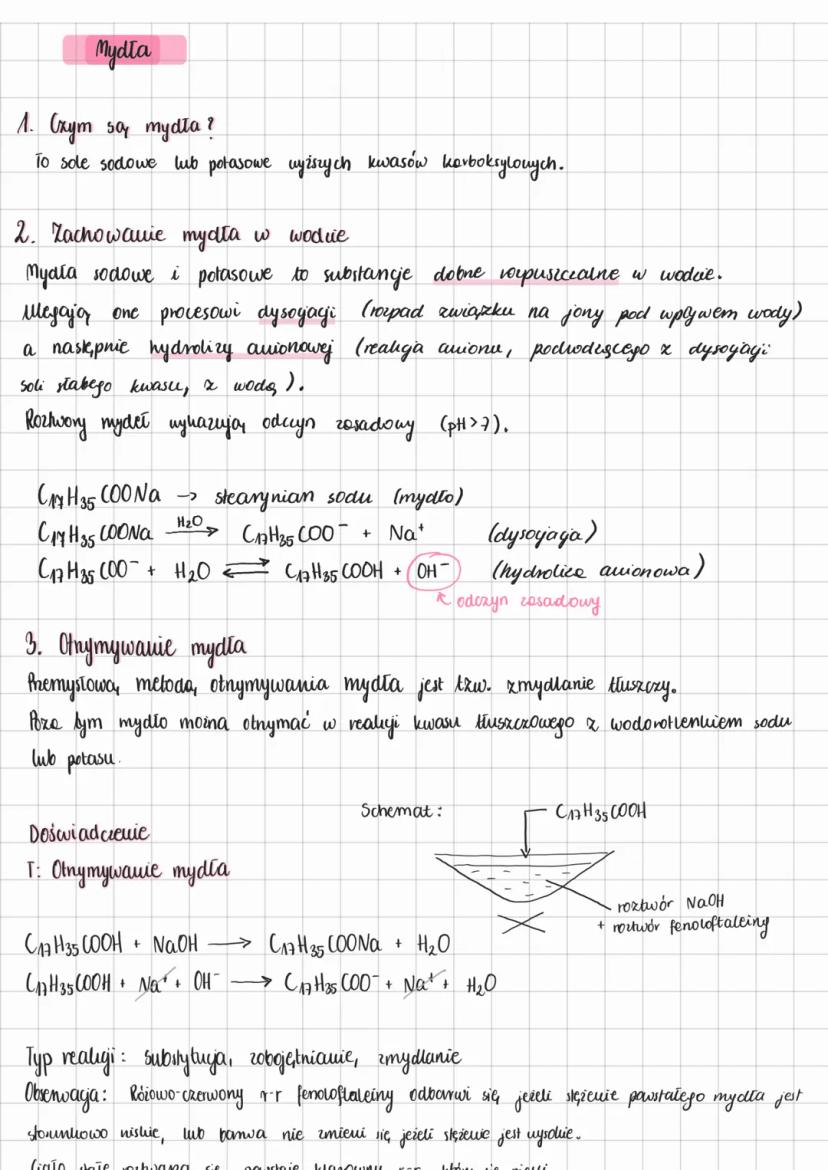 Mydła
1. Czym są mydła?
To sole sodowe lub potasowe wyższych kwasów karboksylowych.
2. Zachowanie mydła w wodzie
Mydła sodowe i potasowe to substancje dobrze rozpuszczalne w wodzie.
Ulegają one procesowi dysocjacji (rozpad związku na jony pod wpływem wody)
a następnie hydrolizy anionowej (reakcja anionu, pochodzącego z dysocjacji
soli słabego kwasu, z wodą).
Roztwory mydeł wykazują odczyn zasadowy (pH>7).
C₁₇H₃₅COONa → stearynian sodu (mydło)
C₁₇H₃₅COONa —H₂O→ C₁₇H₃₅COO⁻ + Na⁺ (dysocjacja)
C₁₇H₃₅COO⁻ + H₂O ⇌ C₁₇H₃₅COOH + OH⁻ (hydroliza anionowa)
↖ odczyn zasadowy
3. Otrzymywanie mydła
Przemysłową metodą otrzymywania mydła jest tzw. zmydlanie tłuszczy.
Poza tym mydło można otrzymać w reakcji kwasu tłuszczowego z wodorotlenkiem sodu
lub potasu.
Doświadczenie
T: Otrzymywanie mydła
Schemat:
C₁₇H₃₅COOH
roztwór NaOH
+ roztwór fenoloftaleiny
C₁₇H₃₅COOH + NaOH → C₁₇H₃₅COONa + H₂O
C₁₇H₃₅COOH + Na⁺ + OH⁻ → C₁₇H₃₅COO⁻ + Na⁺ + H₂O
Typ reakcji: substytucja, zobojętnianie, zmydlanie
Obserwacja: Różowo-czerwony r-r fenoloftaleiny odbarwi się jeżeli stężenie powstałego mydła jest
stosunkowo niskie, lub barwa nie zmieni się jeżeli stężenie jest wysokie.
Ciało stałe